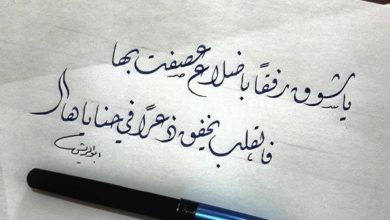 يا شوق رفقًا بأضلاعٍ عصفت بها
فالقلب يخفق ذعرًا في حناياها